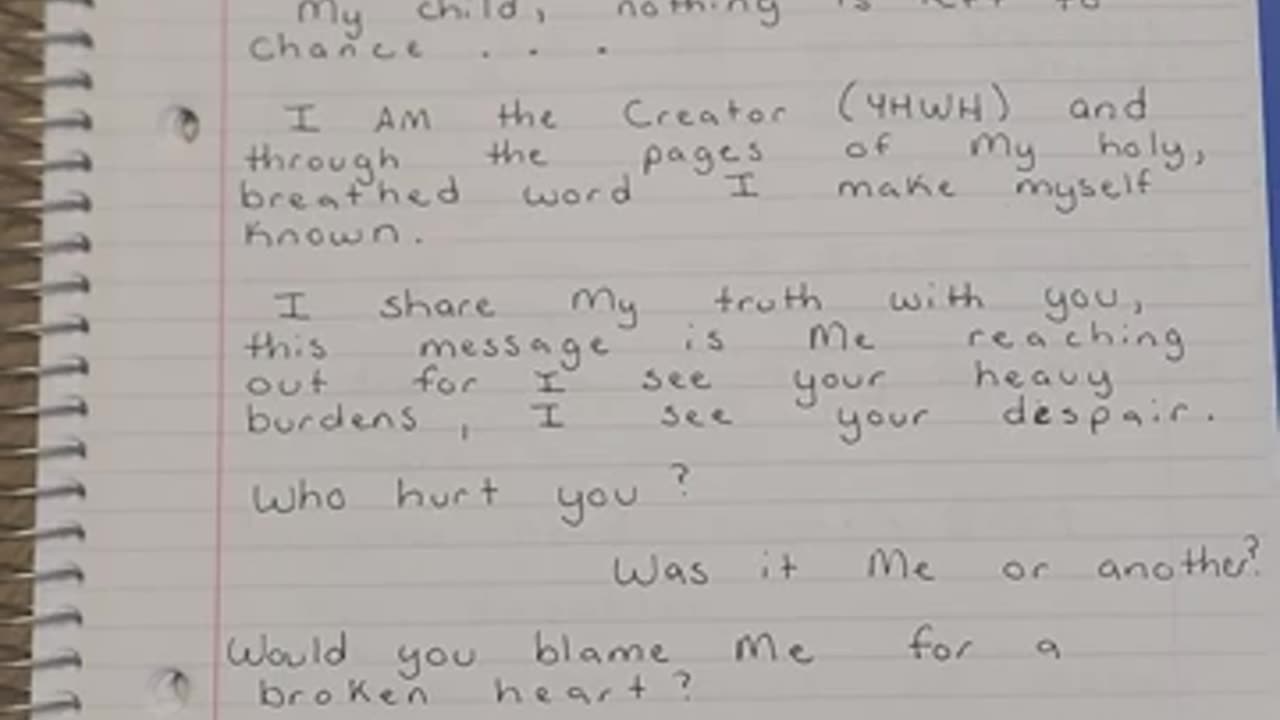 My child, nothing is left to
chance . . .
I AM the Creator (YHWH) and
through the pages of My holy,
breathed word I make myself
known.
I share My truth with you,
this message is Me reaching
out for I see your heavy
burdens, I see your despair.
Who hurt you?
Was it Me or another?
Would you blame Me for a
broken heart?